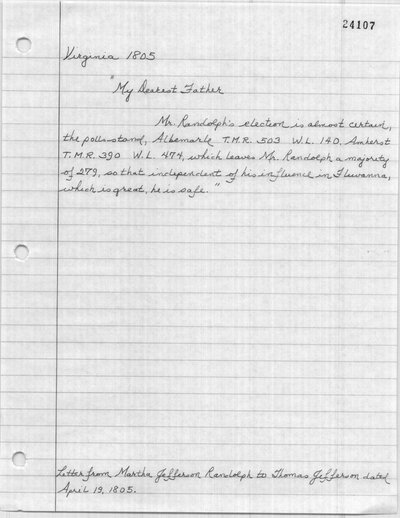 24107
Virginia 1805
"My Dearest Father
Mr. Randolph's election is almost certain,
the polls stand, Albemarle T.M.R. 503 W.L. 140, Amherst
T.M.R. 390 W.L. 474, which leaves Mr. Randolph a majority
of 279, so that independent of his influence in Fluvanna,
which is great, he is safe."
Letter from Martha Jefferson Randolph to Thomas Jefferson dated
April 19, 1805.